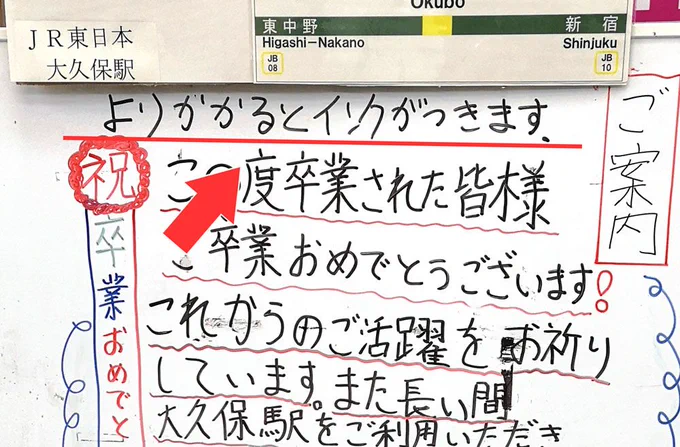 JR東日本
大久保駅
Okubo
東中野
新宿
Higashi-Nakano
Shinjuku
JB
08
JB
10
よりかかるとインクがつきます.
ご案内
祝
卒業おめでと
この度卒業された皆様
ご卒業おめでとうございます!
これからのご活躍をお祈り
しています。また長い間
大久保駅をご利用いただき